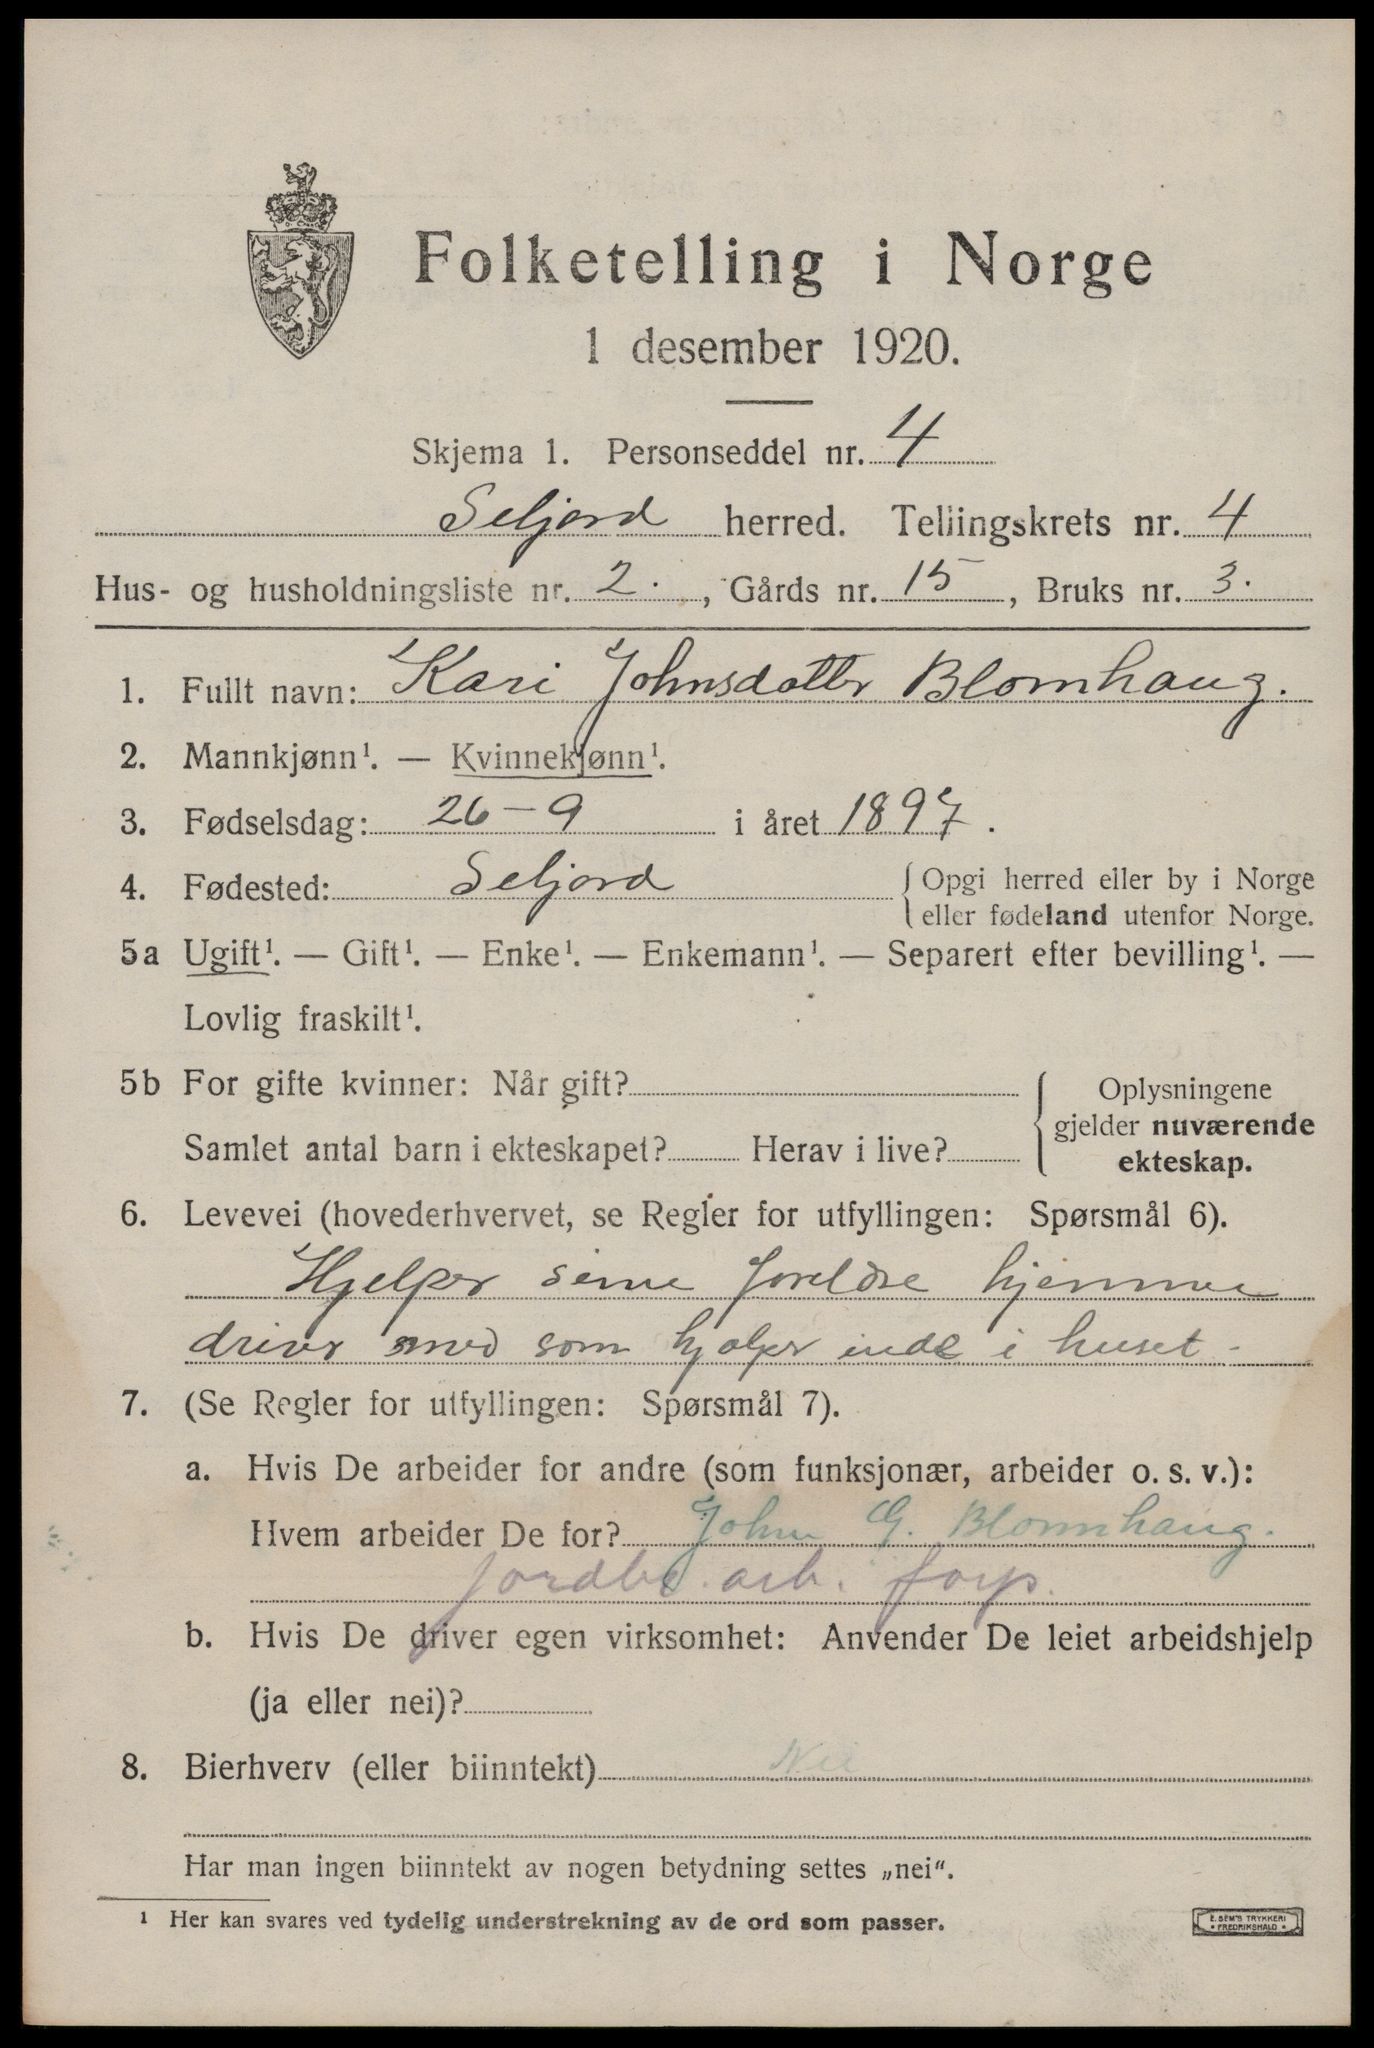 Folketelling i Norge
1 desember 1920.
Skjema 1. Personseddel nr. 4
Seljord herred. Tellingskrets nr. 4
Hus- og husholdningsliste nr. 2. , Gårds nr. 15 , Bruks nr. 3.
1. Fullt navn: Kari Johnsdatter Blomhaug.
2. Mannkjønn¹. — Kvinnekjønn¹.
3. Fødselsdag: 26-9 i året 1897.
4. Fødested: Seljord { Opgi herred eller by i Norge
eller fødeland utenfor Norge.
5a Ugift¹. — Gift¹. — Enke¹. — Enkemann¹. — Separert efter bevilling¹. —
Lovlig fraskilt¹.
5b For gifte kvinner: Når gift? { Oplysningene
gjelder nuværende
Samlet antal barn i ekteskapet? Herav i live?
ekteskap.
6. Levevei (hovederhvervet, se Regler for utfyllingen: Spørsmål 6).
Hjelper sine foreldre hjemme
driver med som hjelper inde i huset.
7. (Se Regler for utfyllingen: Spørsmål 7).
a. Hvis De arbeider for andre (som funksjonær, arbeider o. s. v.):
Hvem arbeider De for? John G. Blomhaug.
jordbr. arb. forp.
b. Hvis De driver egen virksomhet: Anvender De leiet arbeidshjelp
(ja eller nei)?
8. Bierhverv (eller biinntekt) Nei
Har man ingen biinntekt av nogen betydning settes „nei“.
¹ Her kan svares ved tydelig understrekning av de ord som passer.
E. SEM'S TRYKKERI
• FREDRIKSHALD •